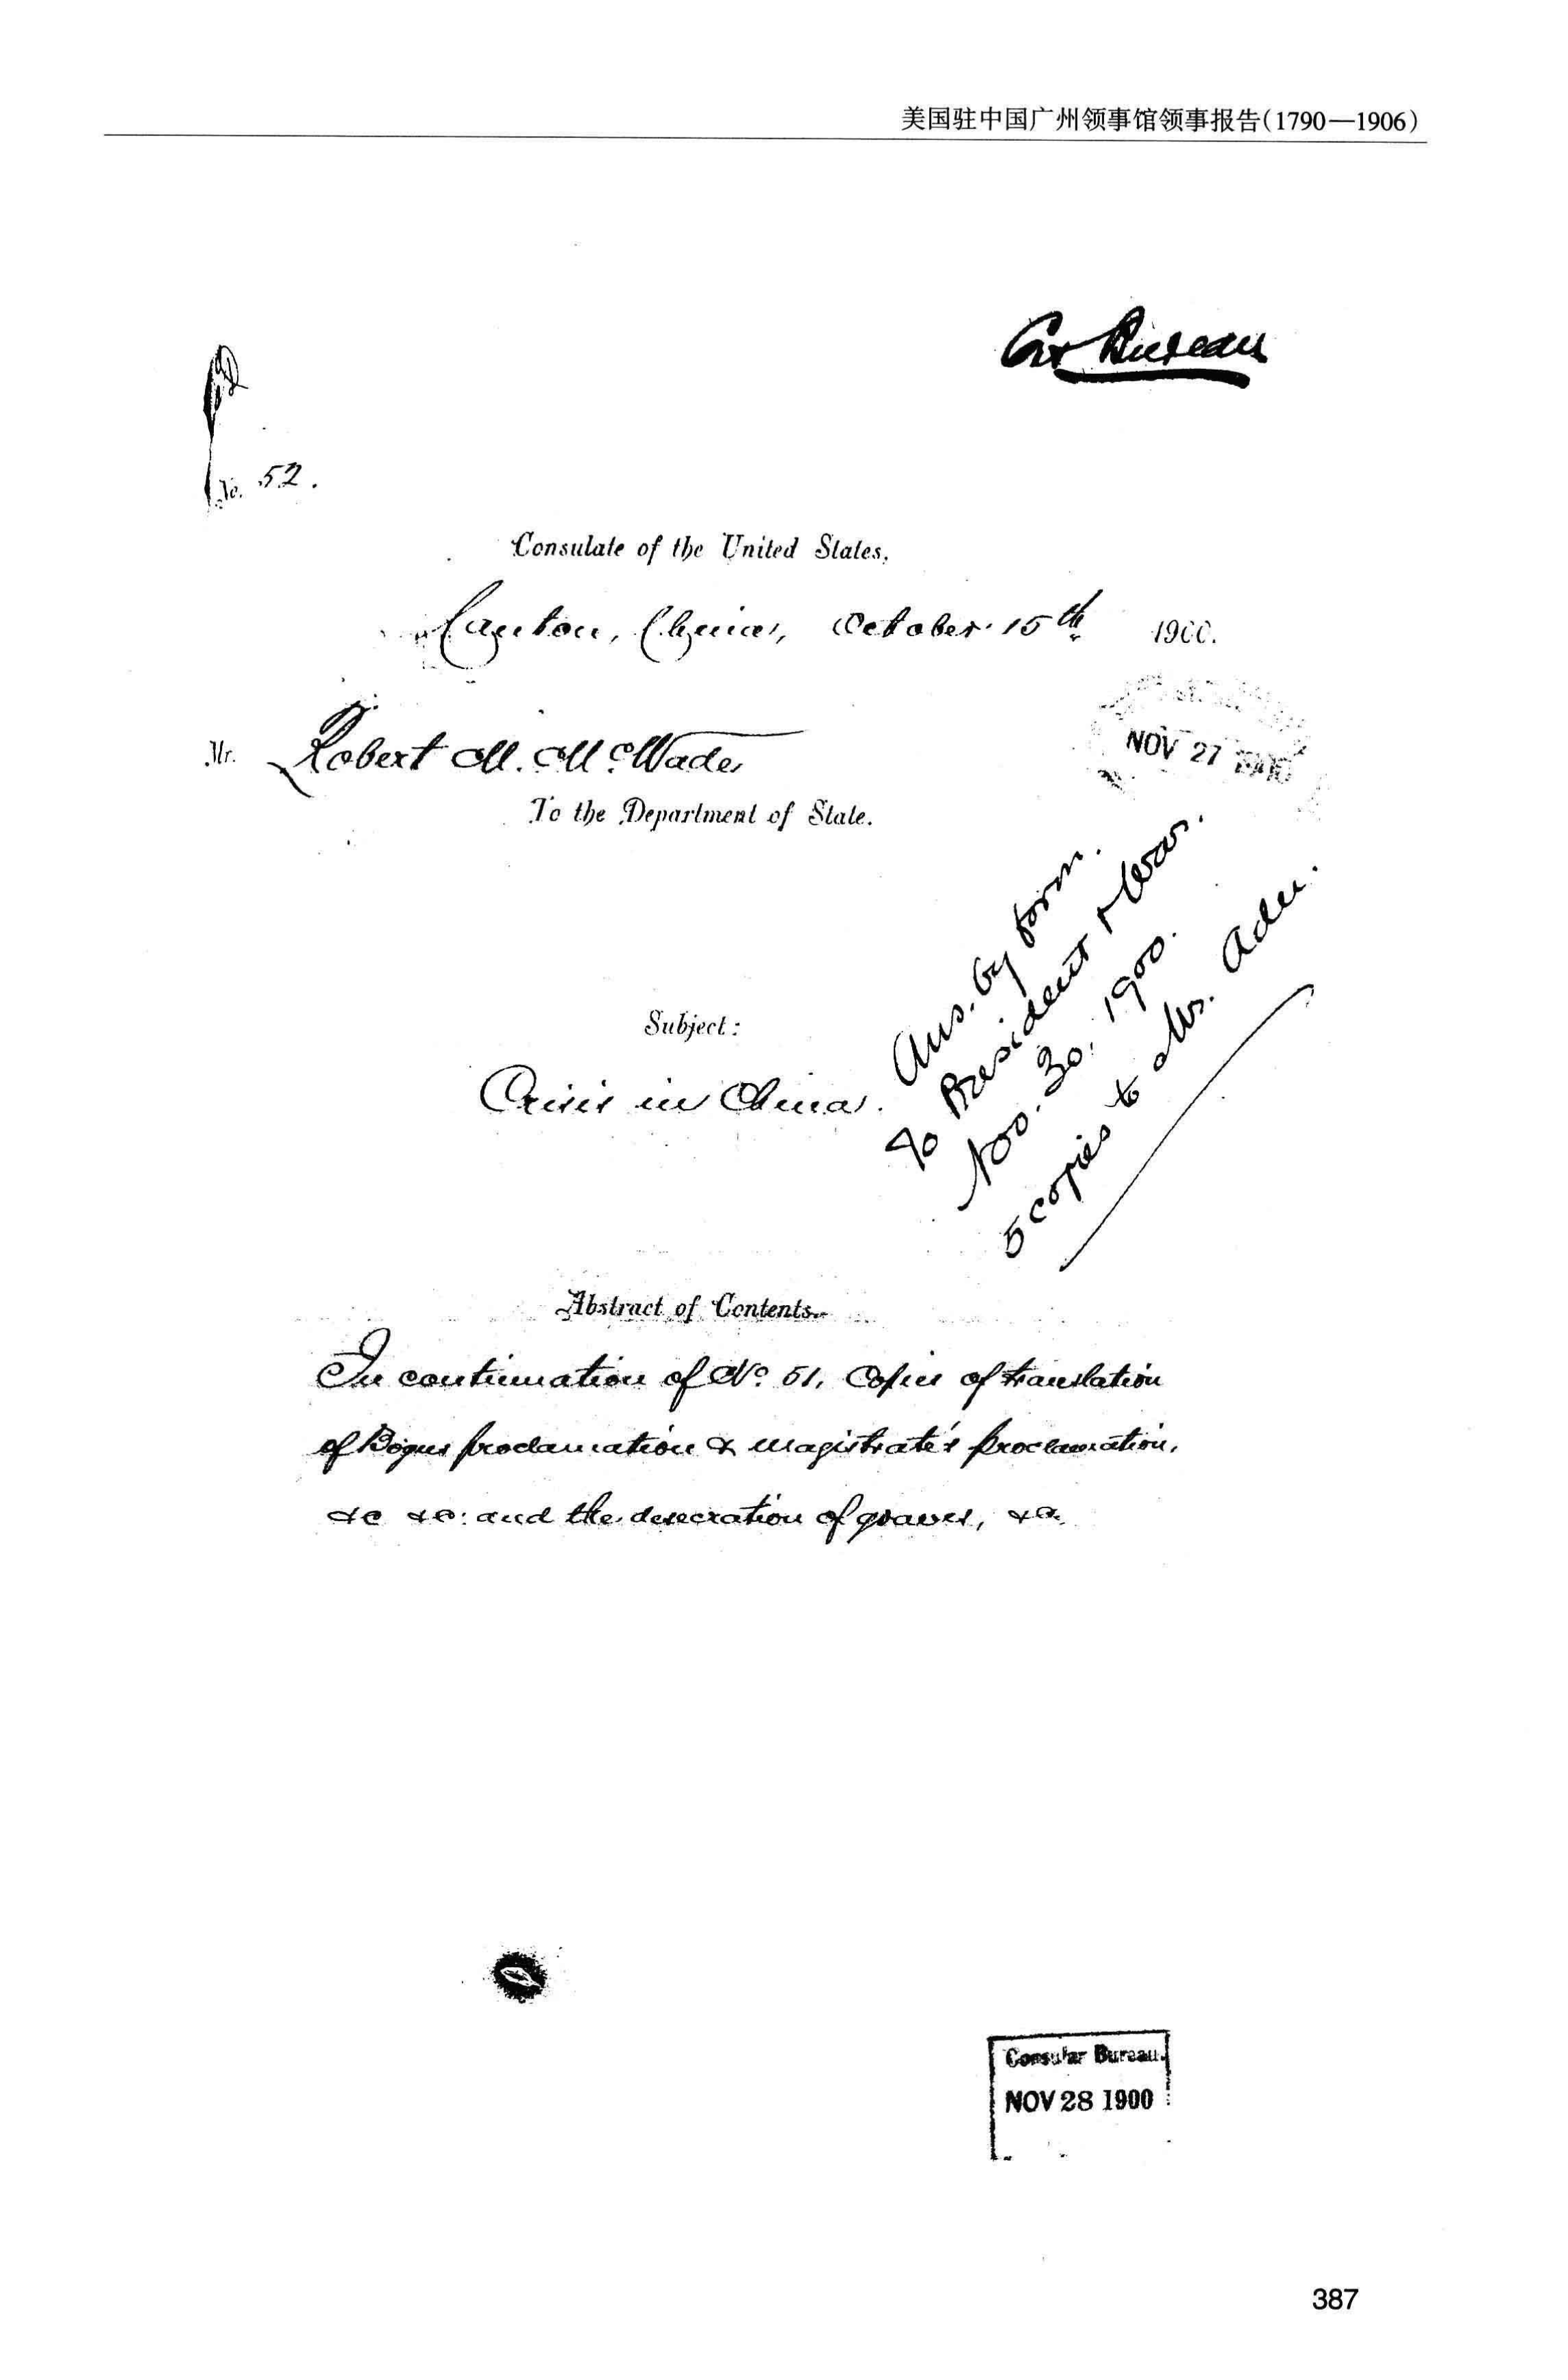 美国驻中国广州领事馆领事报告(1790—1906)
Bureau
No. 52.
Consulate of the United States,
Canton, China, October 15th 1900.
NOV 27 1900
Mr. Robert M. McWade,
To the Department of State.
Ans. by form.
To President & War.
Nov. 30, 1900.
5 copies to Mr. Adee.
Subject:
Crisis in China.
Abstract of Contents.
In continuation of No. 51, Copies of translation
of Bogus proclamation & magistrate's proclamation,
&c &c: and the desecration of graves, &c.
Consular Bureau.
NOV 28 1900
387